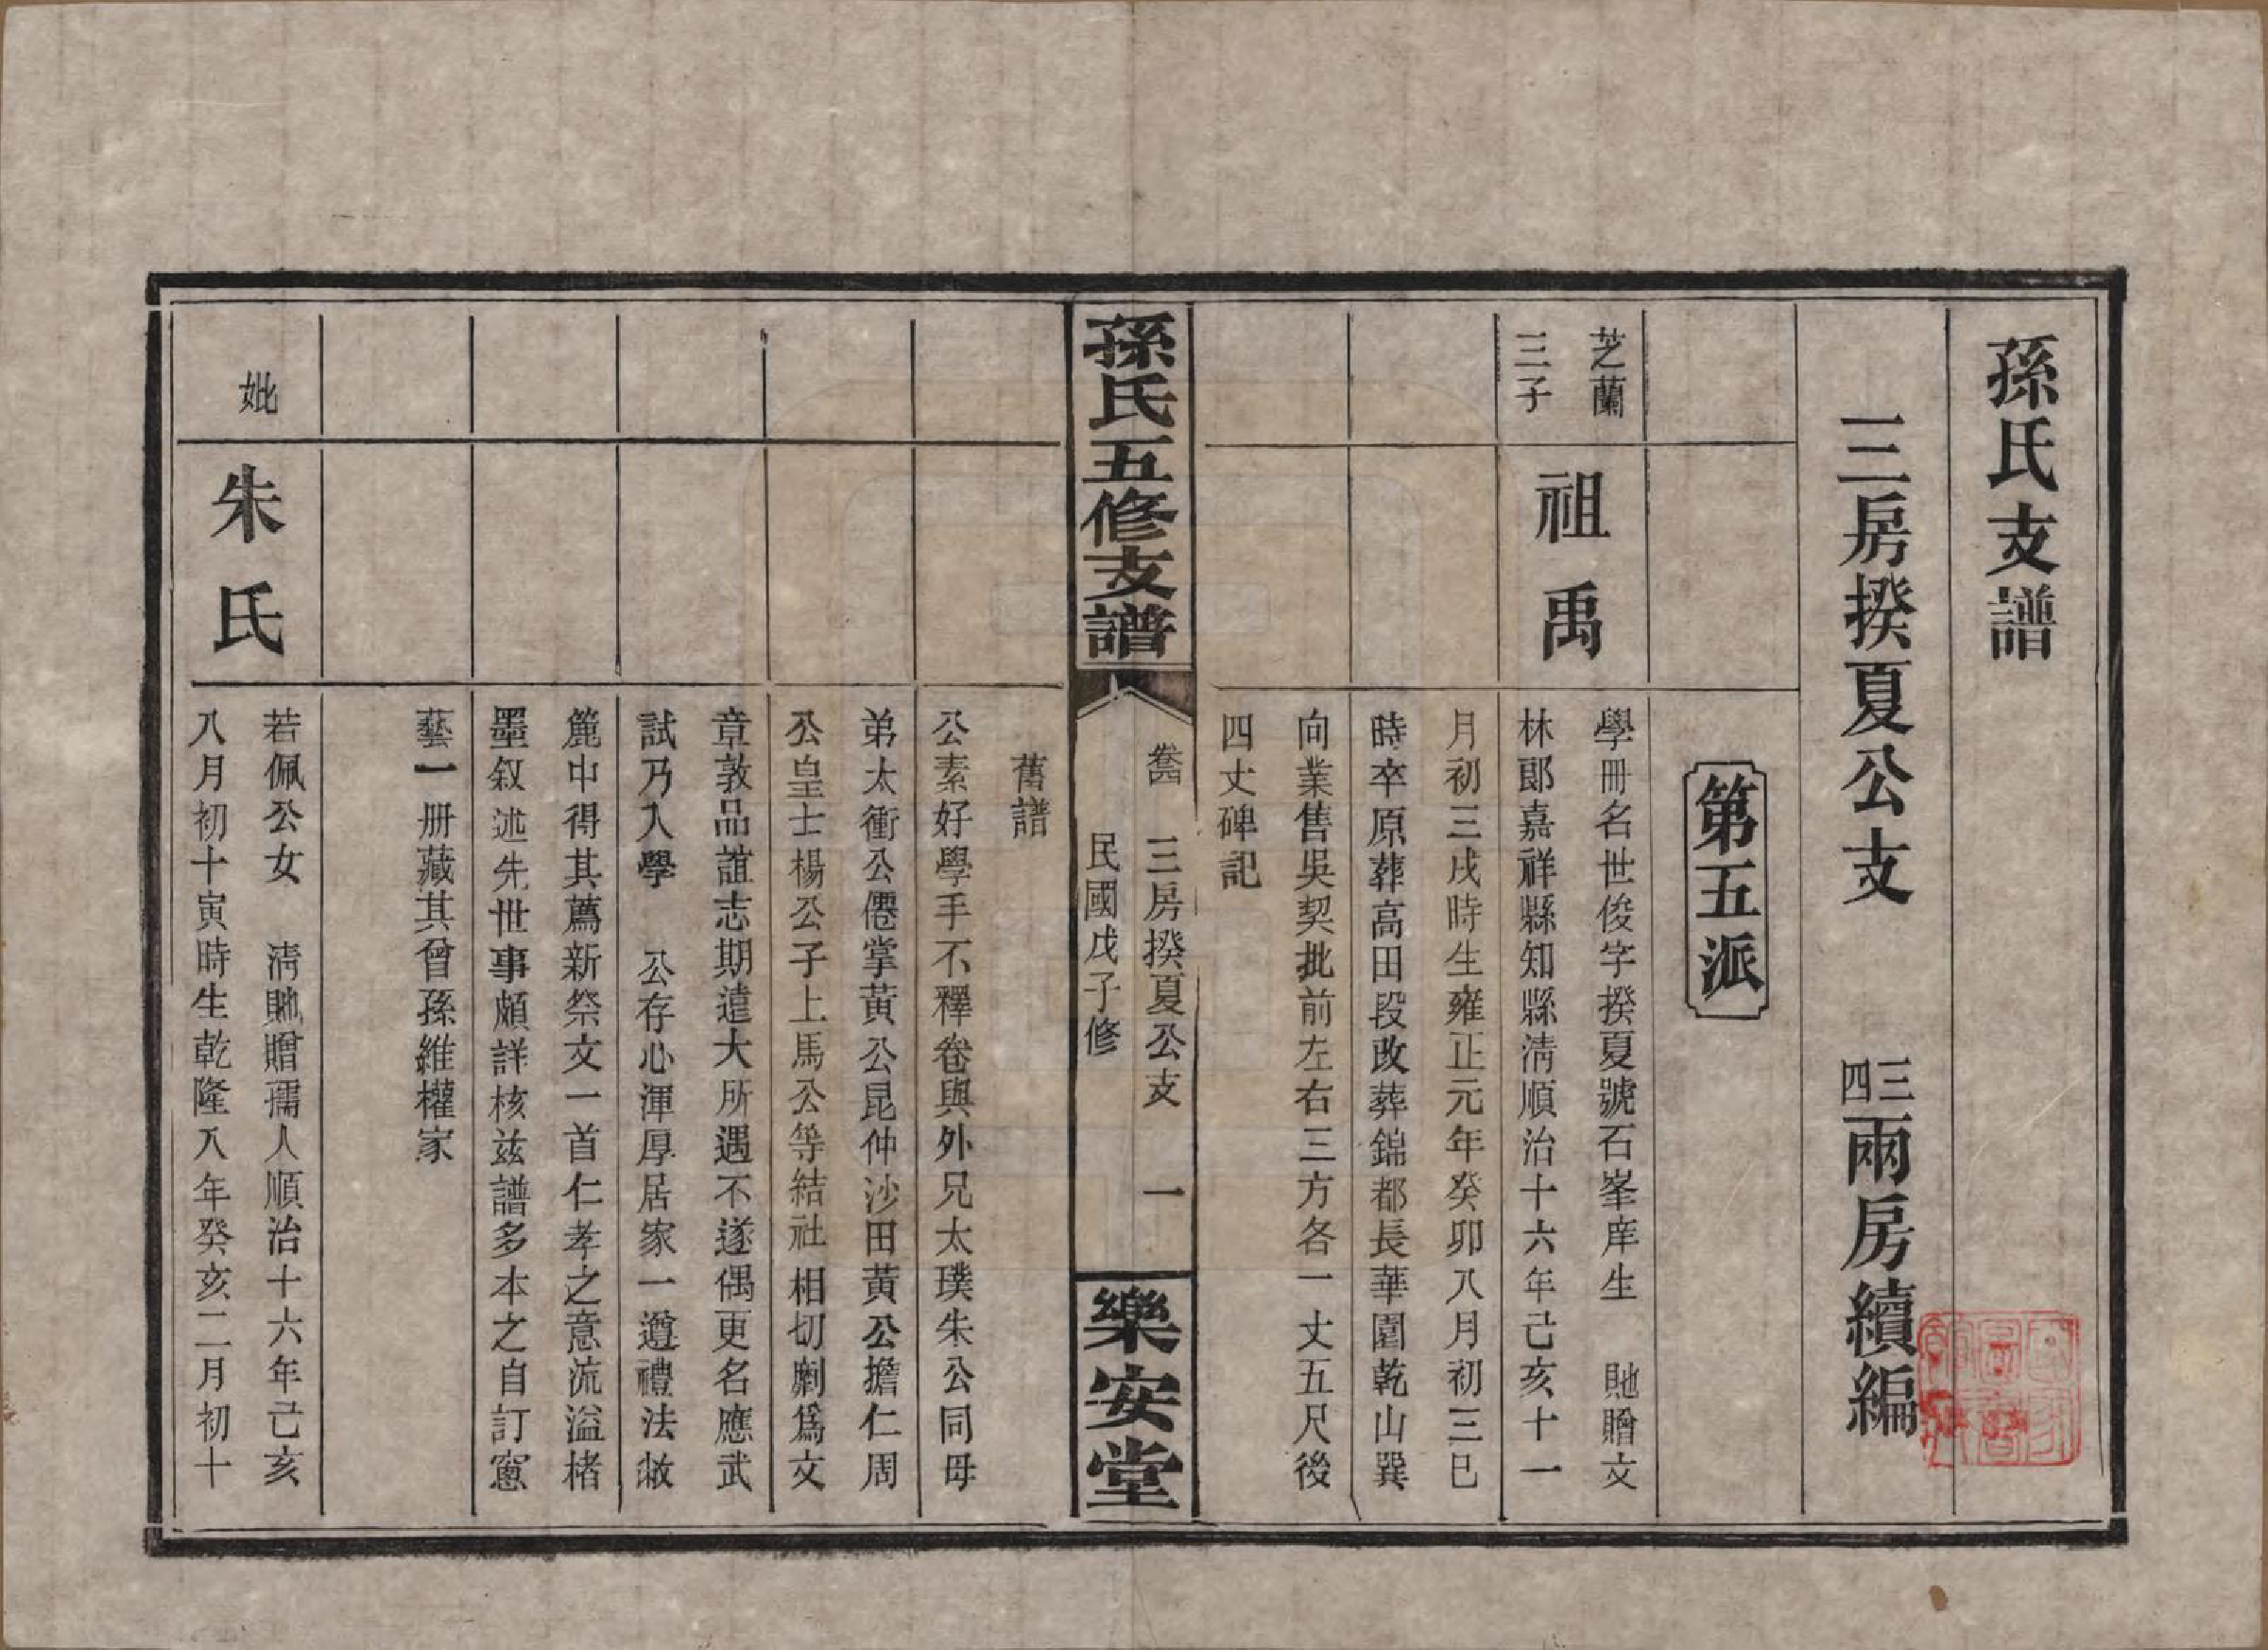 孫氏支譜
三房揆夏公支　三四兩房續編
第五派
芝蘭
三子
祖禹
學冊名世俊字揆夏號石峯庠生　貤贈文
林郞嘉祥縣知縣淸順治十六年己亥十一
月初三戌時生雍正元年癸卯八月初三巳
時卒原葬高田段改葬錦都長華園乾山巽
向業售吳契批前左右三方各一丈五尺後
四丈碑記
孫氏五修支譜
卷四　三房揆夏公支　一
民國戊子修
樂安堂
舊譜
公素好學手不釋卷與外兄太璞朱公同母
弟太衝公僊掌黃公昆仲沙田黃公擔仁周
公皇士楊公子上馬公等結社相切劘爲文
章敦品誼志期遠大所遇不遂偶更名應武
試乃入學　公存心渾厚居家一遵禮法敝
簏中得其薦新祭文一首仁孝之意流溢楮
墨叙述先世事頗詳核兹譜多本之自訂窻
藝一册藏其曾孫維權家
妣
朱氏
若佩公女　淸貤贈孺人順治十六年己亥
八月初十寅時生乾隆八年癸亥二月初十